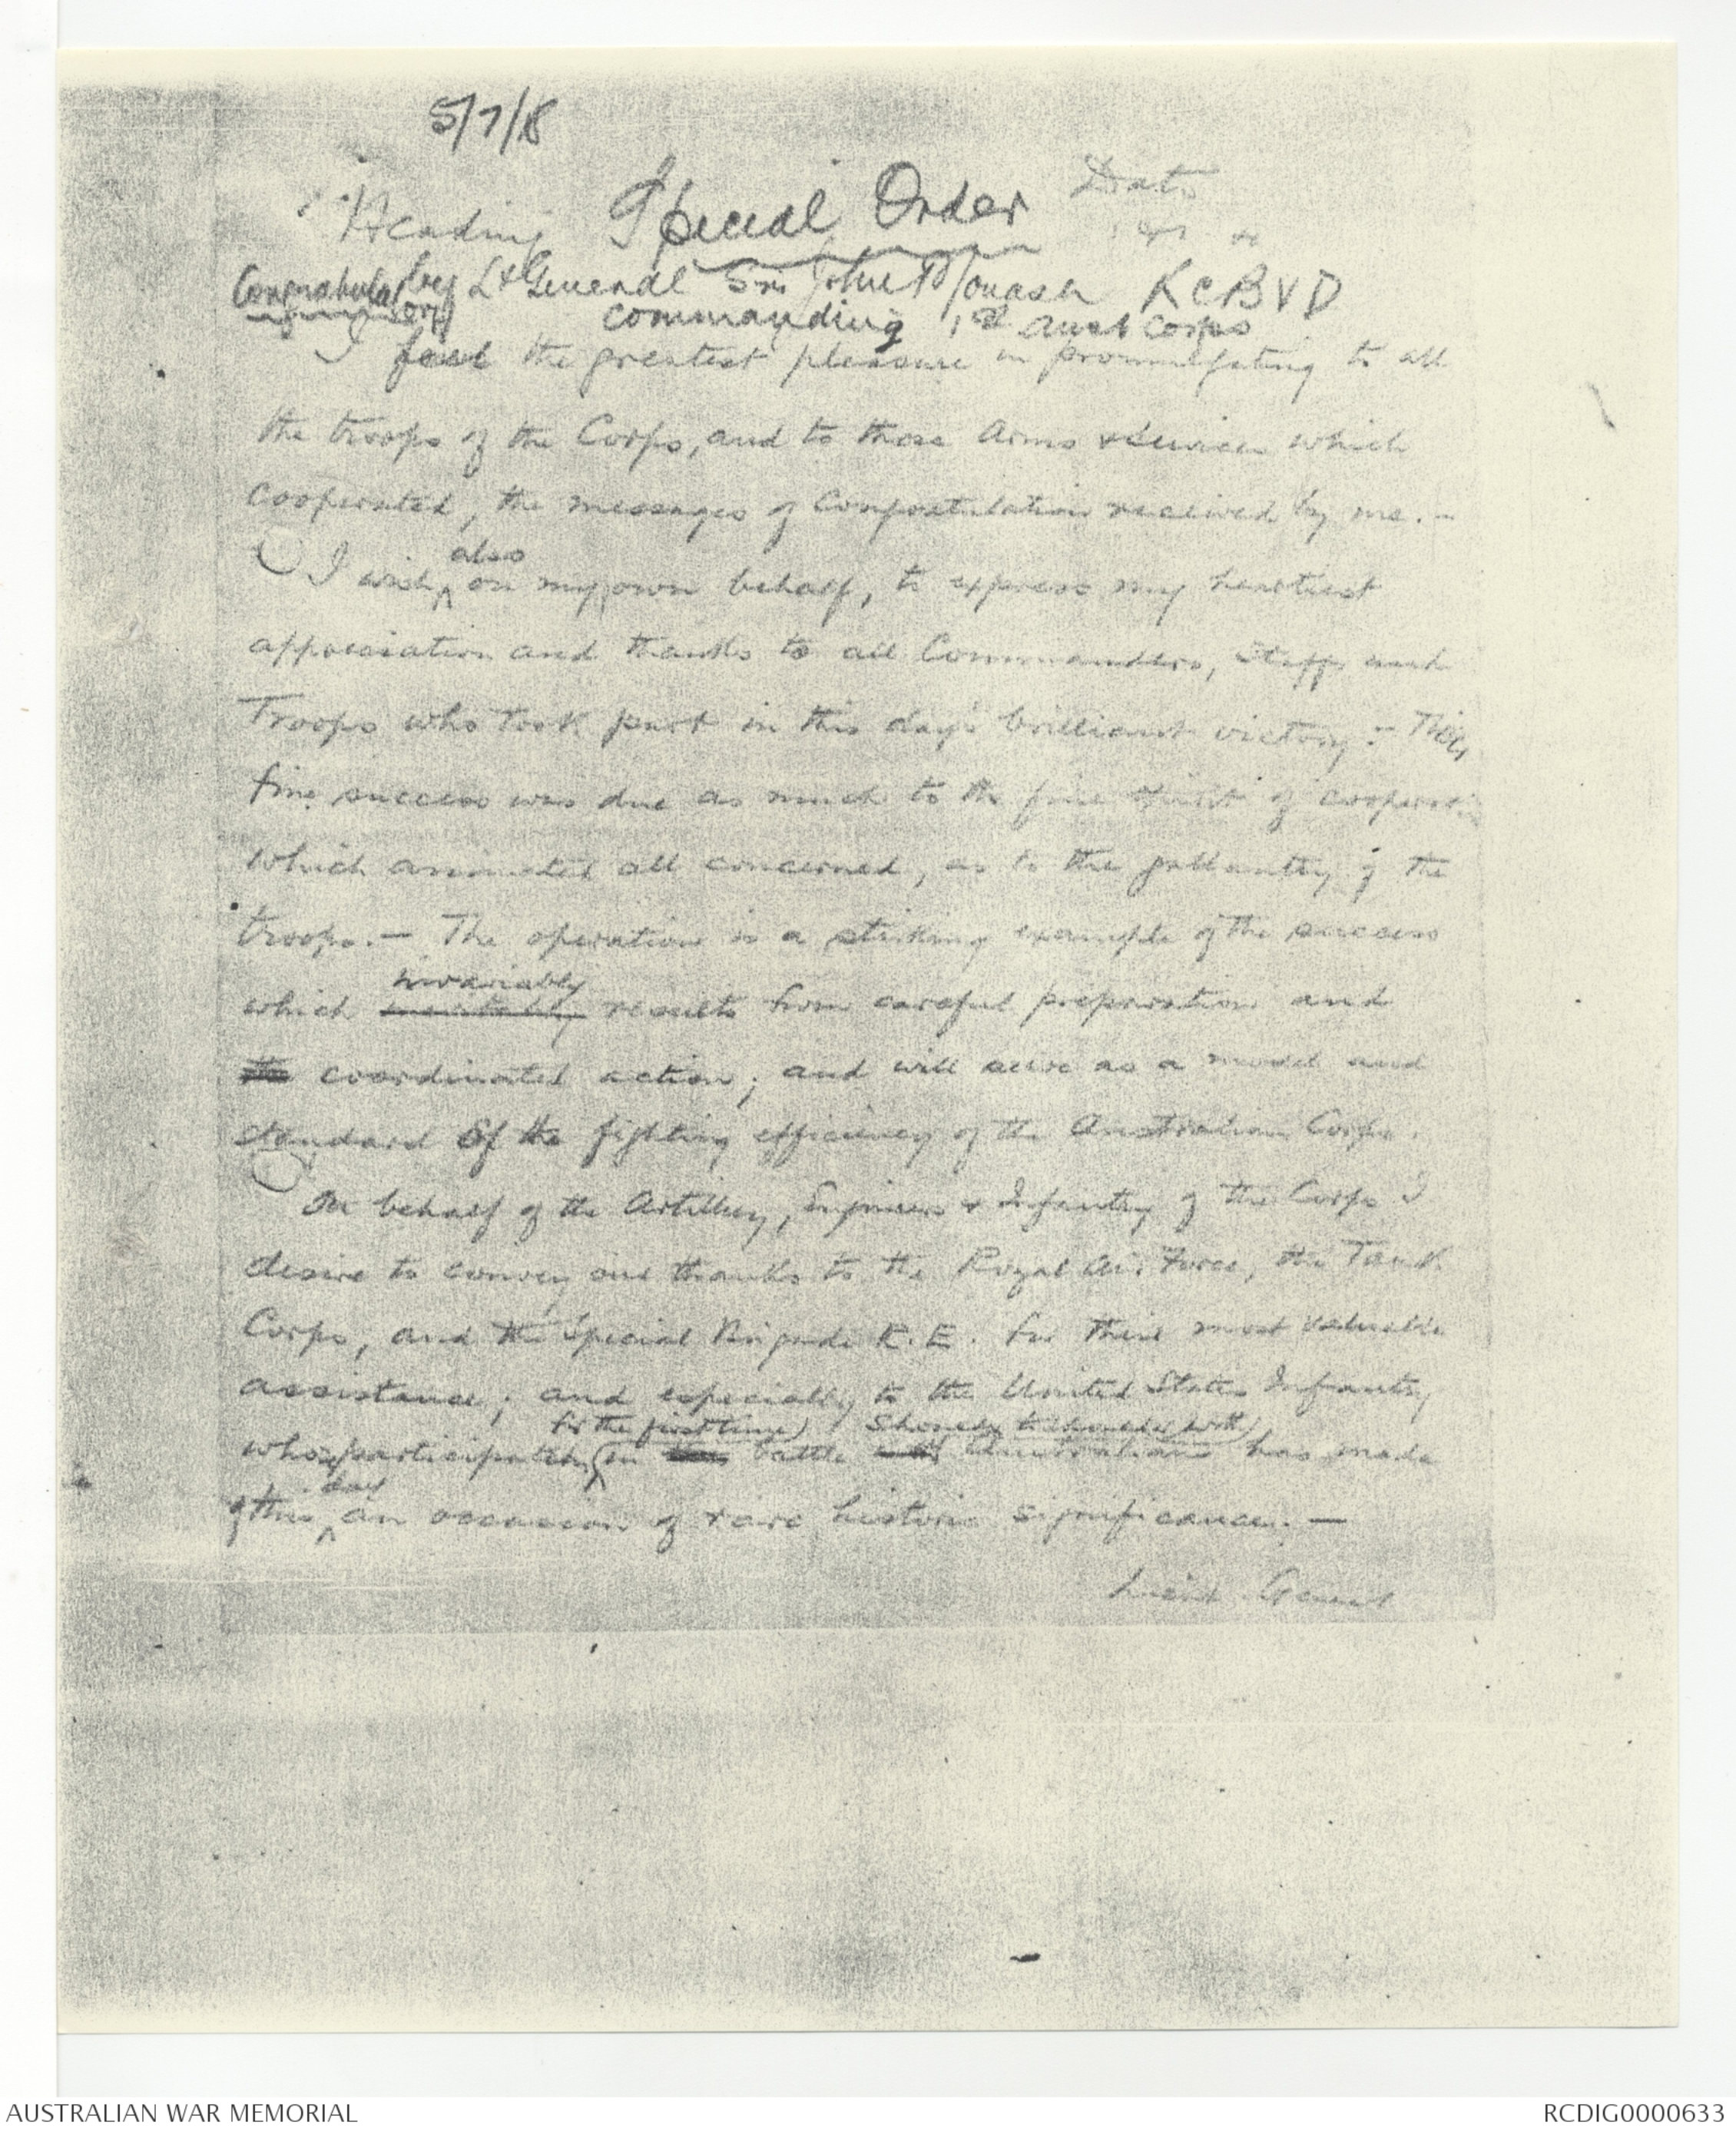 5/7/18
Heading Special Order Date
Congratulatory by Lt General Sir John Monash KCB VD
commanding Aust Corps
I feel the greatest pleasure in promulgating to all
the troops of the Corps, and to those Arms & Services which
cooperated, the messages of Congratulation received by me. -
also
I wish, on my own behalf, to express my heartiest
appreciation and thanks to all Commanders, Staffs and
Troops who took part in this day's brilliant victory :- This
fine success was due as much to the fine spirit of
which animated all concerned, as to the gallantry of the
troops. — The operation is a striking example of the success
invariably
which inevitably results from careful preparation and
the coordinated action; and will serve as a model and
standard of the fighting efficiency of the Australian Corps.
On behalf of the Artillery, Engineers & Infantry of the Corps I
desire to convey our thanks to the Royal Air Force, the Tank
Corps, and the Special Brigade R.E. for their most valuable
assistance; and especially to the United States Infantry
for the first time, shoulder to shoulder with
whose participation in battle with Australians has made
day
of this an occasion of rare historic significance. —
Lieut General
AUSTRALIAN WAR MEMORIAL
RCDIG0000633